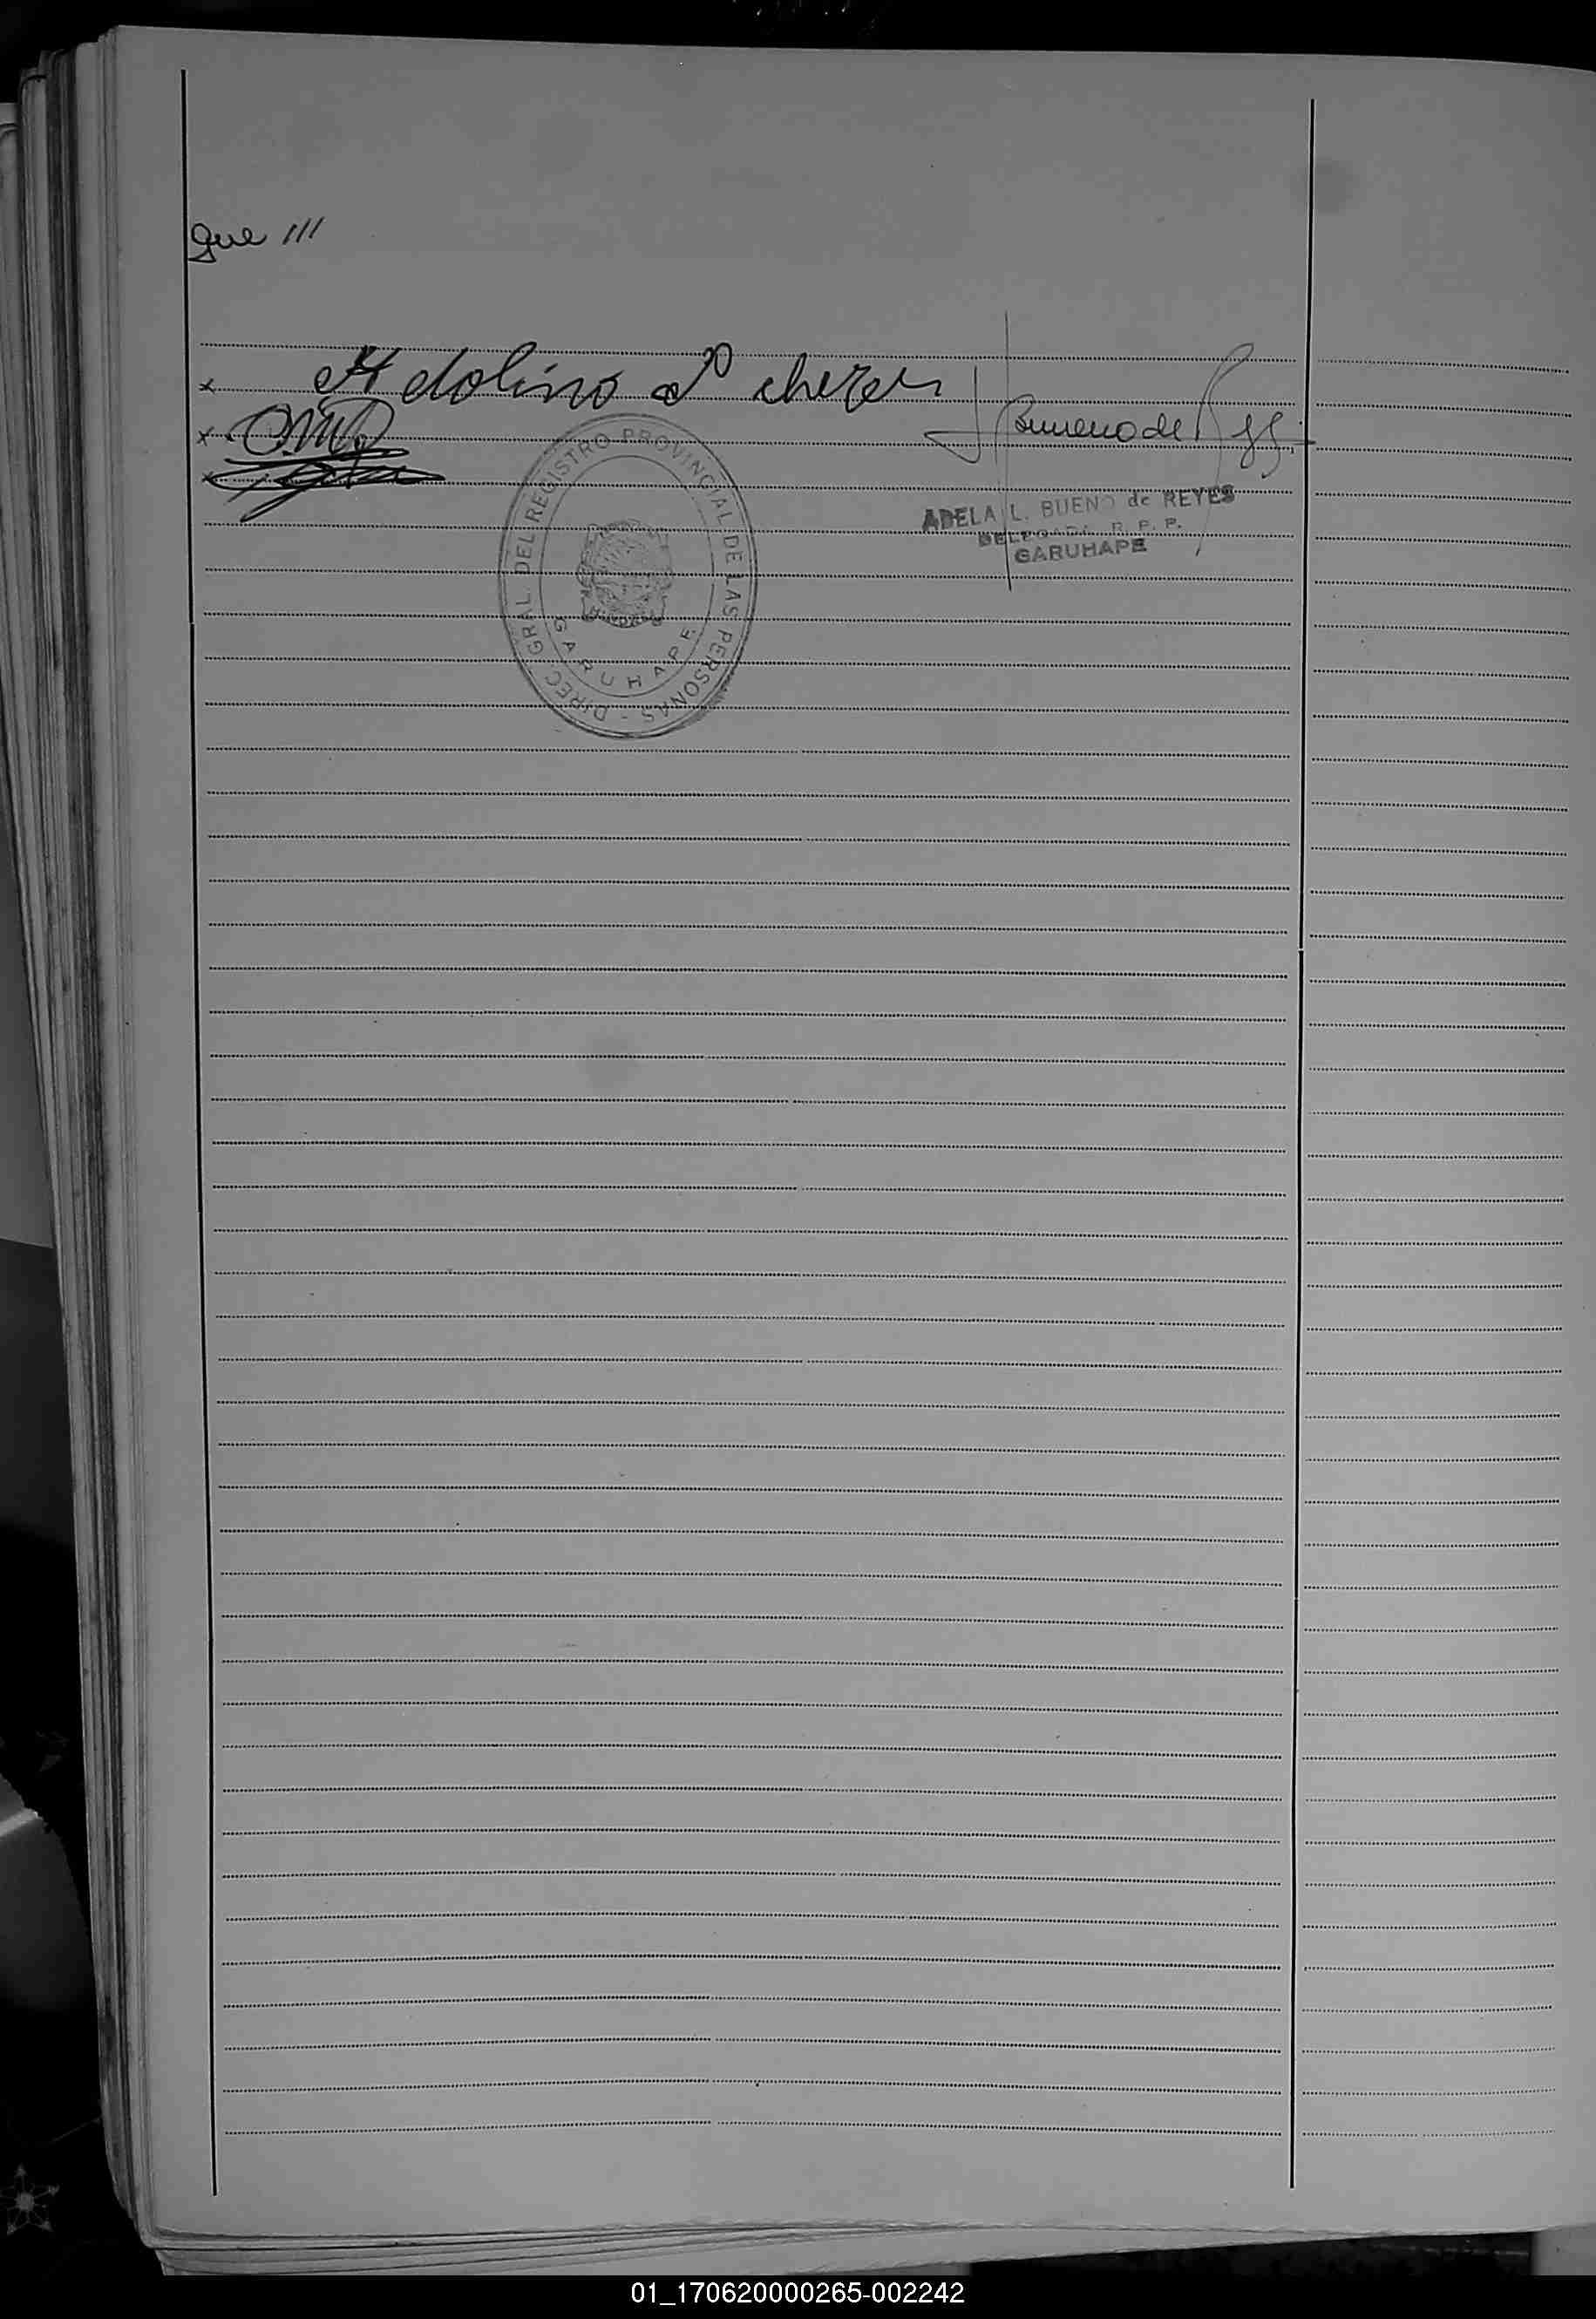 gue ///
x Adolino
x
x
Bueno de
DIREC. GRAL. DEL REGISTRO PROVINCIAL DE LAS PERSONAS -
GARUHAPE
ADELA L. BUENO de REYES
DELEGADA R. P. P.
GARUHAPE
01_170620000265-002242